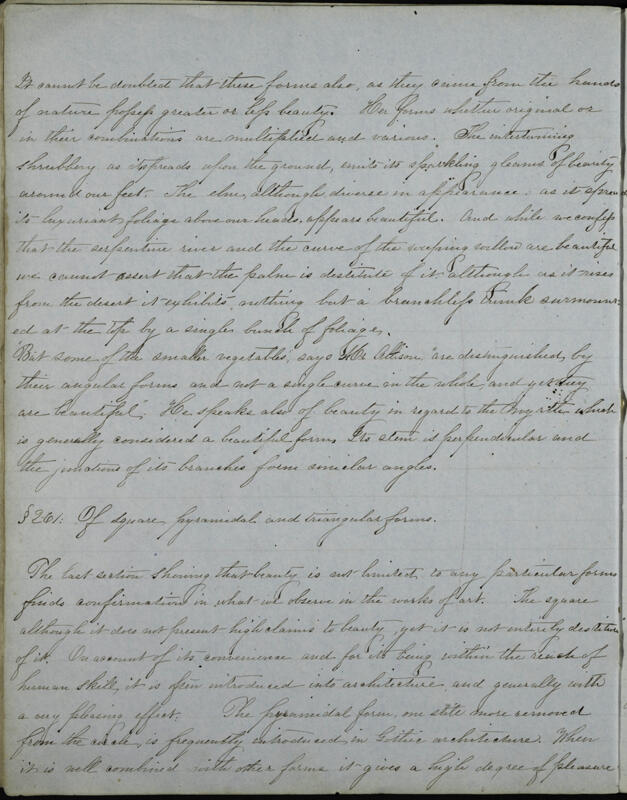 It cannot be doubted that these forms also, as they come from the hands
of nature possess greater or less beauty. Her forms whether original or
in their combinations are multiplied and various. The intertwining
shrubbery as it spreads upon the ground, emits its sparkling gleams of beauty
around our feet. The elm, although diverse in appearance, as it spreads
its luxuriant foliage above our heads, appears beautiful. And while we confess
that the serpentine river and the curve of the weeping willow are beautiful
we cannot assert that the palm is destitute of it although as it rises
from the desert it exhibits nothing but a branchless trunk surmount-
ed at the top by a single bunch of foliage.
"But some of the smaller vegetables, says Mr Alison, "are distinguished by
their angular forms and not a single curve in the whole and yet they
are beautiful". He speaks also of beauty in regard to the myrtle which
is generally considered a beautiful form. Its stem is perpendicular and
the junctions of its branches form similar angles.
§261: Of square, pyramidal and triangular forms.
The last section showing that beauty is not limited to any particular forms
finds confirmation in what we observe in the works of art. The square
although it does not present high claims to beauty, yet it is not entirely destitute
of it. On account of its convenience and for its being within the reach of
human skill, it is often introduced into architecture and generally with
a very pleasing effect. The pyramidal form, one state more removed
from the circle, is frequently introduced in Gothic architecture. When
it is well combined with other forms it gives a high degree of pleasure